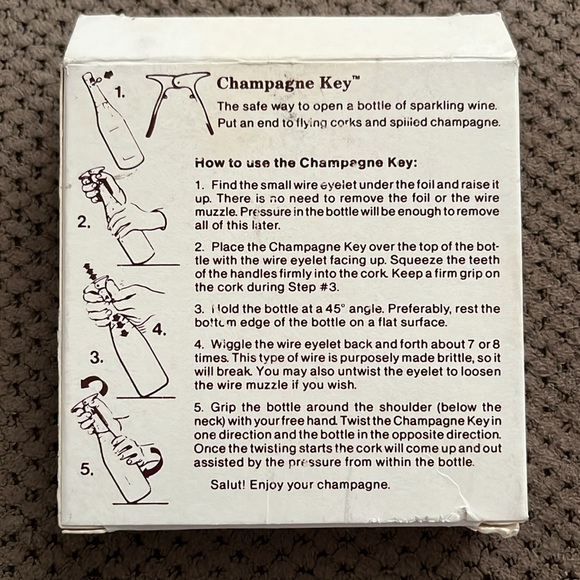 Champagne Key™
The safe way to open a bottle of sparkling wine.
Put an end to flying corks and spilled champagne.
How to use the Champagne Key:
1. Find the small wire eyelet under the foil and raise it
up. There is no need to remove the foil or the wire
muzzle. Pressure in the bottle will be enough to remove
all of this later.
2. Place the Champagne Key over the top of the bot-
tle with the wire eyelet facing up. Squeeze the teeth
of the handles firmly into the cork. Keep a firm grip on
the cork during Step #3.
3. Hold the bottle at a 45° angle. Preferably, rest the
bottom edge of the bottle on a flat surface.
4. Wiggle the wire eyelet back and forth about 7 or 8
times. This type of wire is purposely made brittle, so it
will break. You may also untwist the eyelet to loosen
the wire muzzle if you wish.
5. Grip the bottle around the shoulder (below the
neck) with your free hand. Twist the Champagne Key in
one direction and the bottle in the opposite direction.
Once the twisting starts the cork will come up and out
assisted by the pressure from within the bottle.
Salut! Enjoy your champagne.
1.
2.
3.
4.
5.